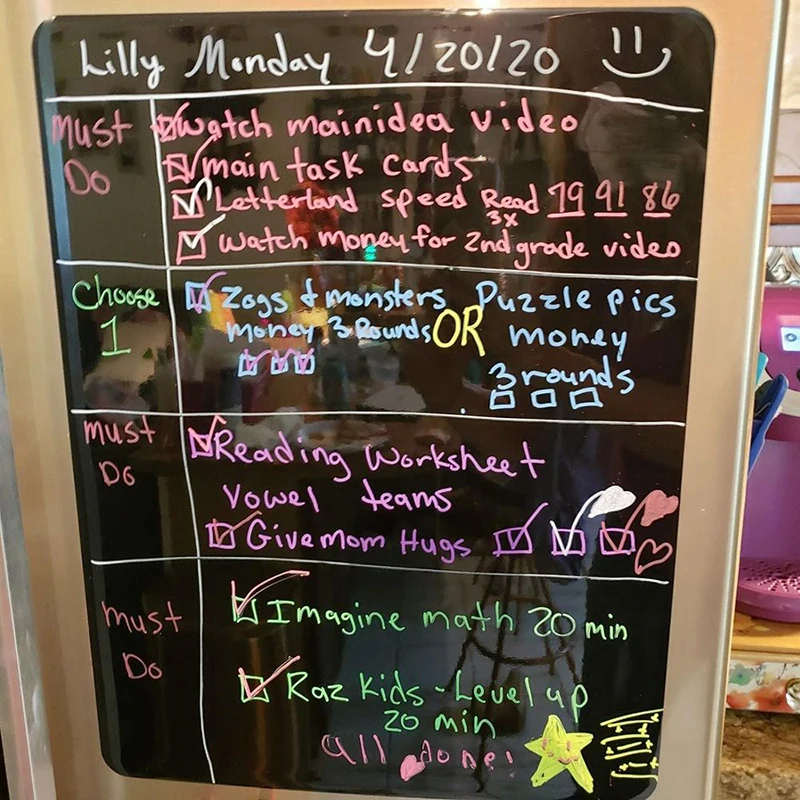 Lilly Monday 4/20/20
Must Do
Watch mainidea video
main task cards
Letterland speed Read 79 91 86
3x
Watch money for 2nd grade video
Choose 1
Zogs & monsters
money 3 Rounds
OR
Puzzle pics
money
3 rounds
Must Do
Reading Worksheet
vowel teams
Give mom Hugs
must Do
Imagine math 20 min
Raz Kids - Level up
20 min
all done!